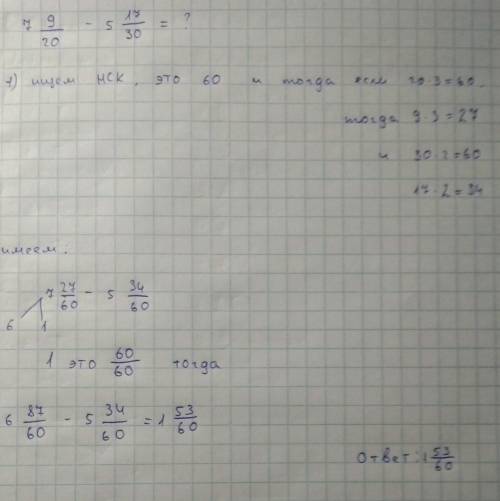 7 9/20 - 5 17/30 = ?
1) ищем НСК, это 60 и тогда если 20·3=60,
тогда 9·3=27
и 30·2=60
17·2=34
имеем:
7 27/60 - 5 34/60
6 1
1 это 60/60 тогда
6 87/60 - 5 34/60 = 1 53/60
Ответ: 1 53/60